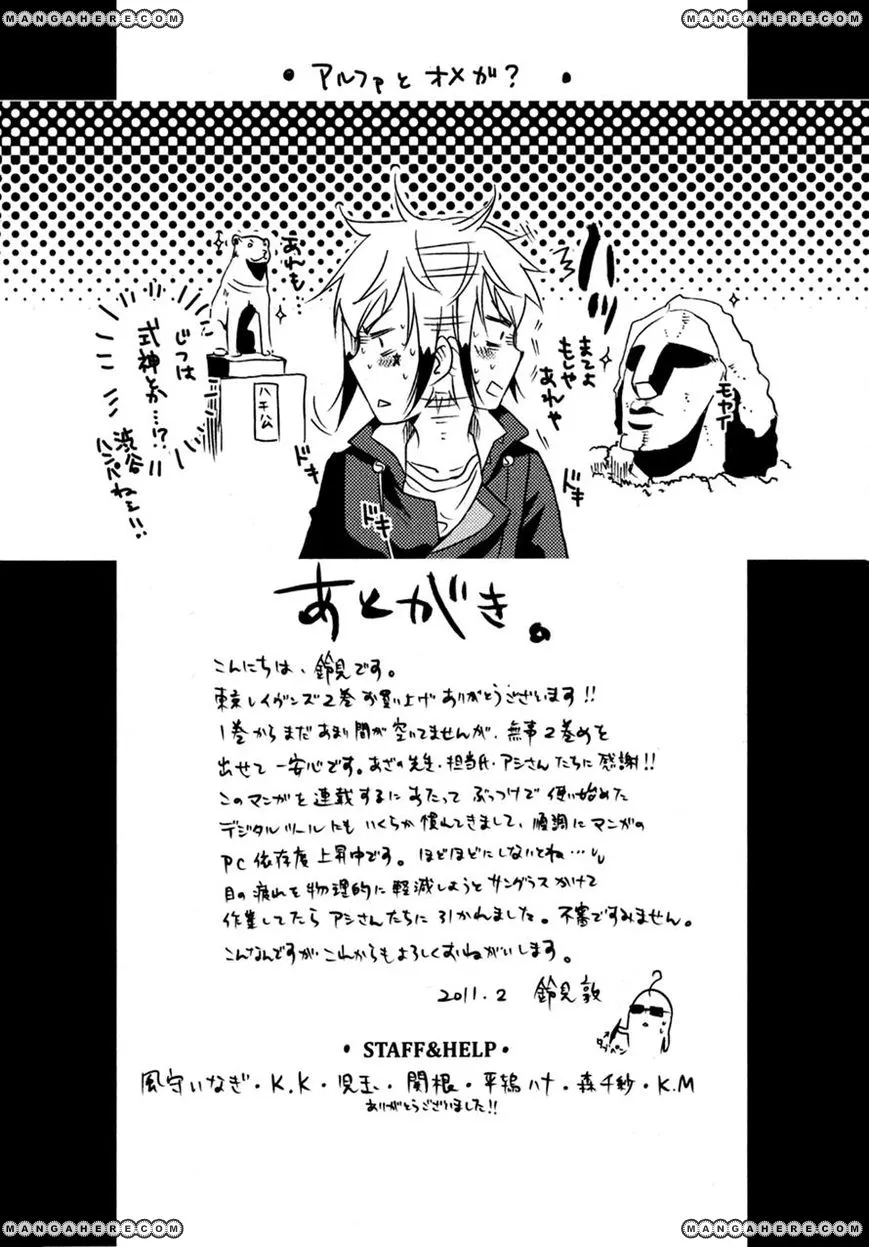 MANGAHERE.COM
MANGAHERE.COM
・アルファとオメガ？・
ハッ
まてよ
もしや
あれや
モヤイ
あれも…
ハチ公
じつは
式神とか…!?
渋谷
ハンパねェ…
ドキ
ドキ
ドキ
ドキ
あとがき。
こんにちは、鈴見です。
東京レイヴンズ2巻お買い上げありがとうございます!!
1巻からまだあまり間が空いてませんが、無事2巻めを
出せて一安心です。あざの先生・担当氏・アシさんたちに感謝!!
このマンガを連載するにあたってぶっつけで使い始めた
デジタルツールにもいくらか慣れてきまして、順調にマンガの
PC依存度上昇中です。ほどほどにしないとね…
目の疲れを物理的に軽減しようとサングラスかけて
作業してたらアシさんたちに引かれました。不審ですみません。
こんなんですが、これからもよろしくおねがいします。
2011.2 鈴見敦
タブペン
・STAFF&HELP・
風守いなぎ・K.K・児玉・関根・平鴇ハナ・森千紗・K.M
ありがとうございました!!
MANGAHERE.COM
MANGAHERE.COM